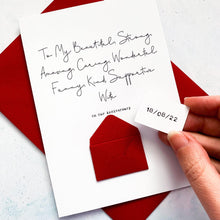 To My Beautiful, Strong,
Amazing, Caring, Wonderful
Funny, Kind, Supportive
Wife
ON OUR ANNIVERSARY
10/08/22